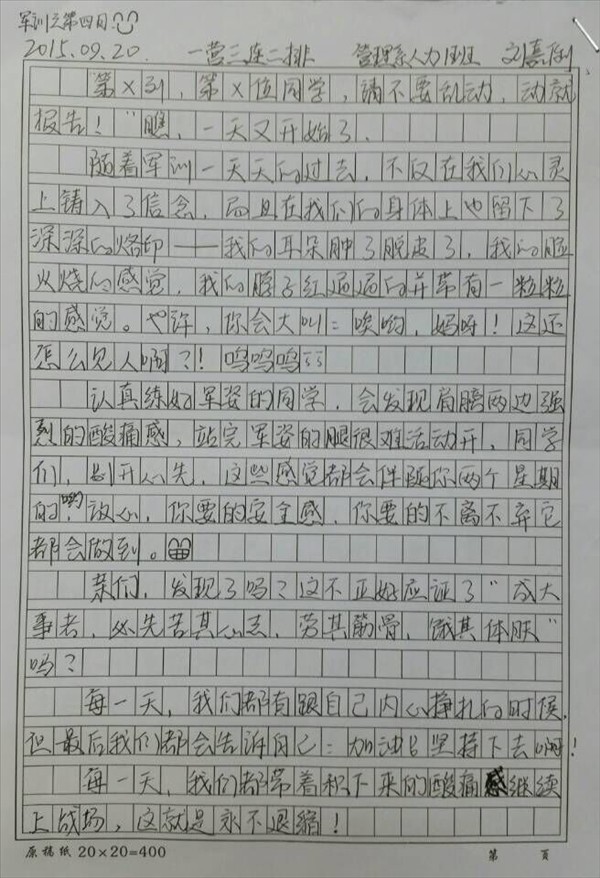 军训之第四日
2015.09.20. 一营三连二排 管理系人力1班 刘嘉俐
“第×列，第×位同学，请不要乱动，动就
报告！”瞧，一天又开始了.
随着军训一天天的过去，不仅在我们心灵
上铸入了信念，而且在我们的身体上也留下了
深深的烙印——我的耳朵肿了脱皮了，我的脸
火烧的感觉，我的脖子红通通的并带有一粒粒
的感觉。也许，你会大叫：唉哟，妈呀！这还
怎么见人啊？！呜呜呜
认真练好军姿的同学，会发现肩膀两边强
烈的酸痛感，站完军姿的腿很难活动开，同学
们，别开心先，这些感觉都会伴随你两个星期
的哟，放心，你要的安全感，你要的不离不弃它
都会做到。
亲们，发现了吗？这不正好应证了“成大
事者，必先苦其心志，劳其筋骨，饿其体肤”
吗？
每一天，我们都有跟自己内心挣扎的时候，
但最后我们都会告诉自己：加油！坚持下去啊！
每一天，我们都带着积下来的酸痛感继续
上战场，这就是永不退缩！
原稿纸 20×20=400 第 页